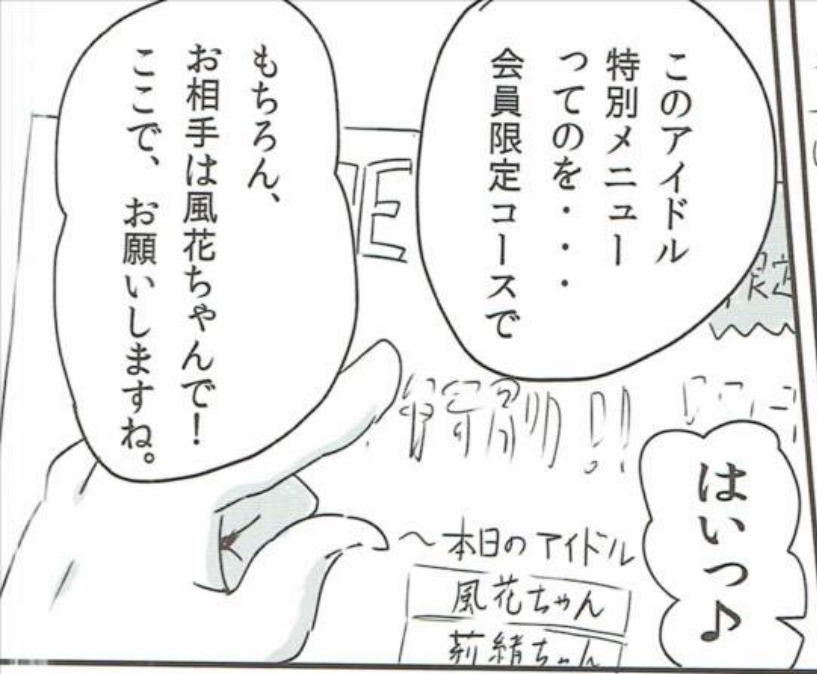 このアイドル
特別メニュー
ってのを・・・
会員限定コースで
もちろん、
お相手は風花ちゃんで！
ここで、お願いしますね。
はいっ♪
限定
特別!!
～本日のアイドル
風花ちゃん
莉緒ちゃん